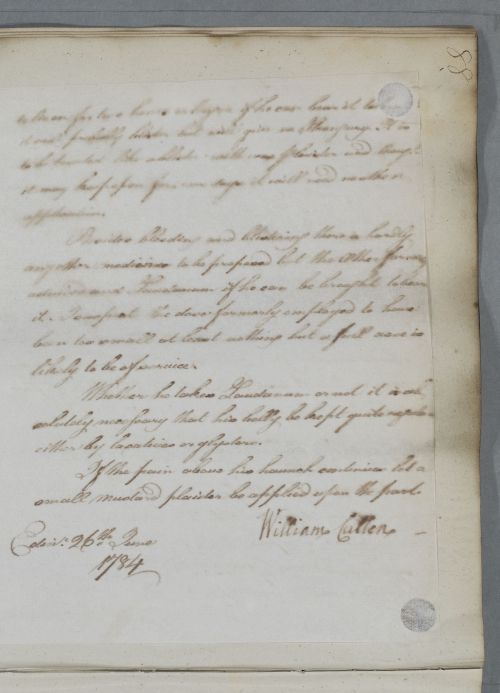 taken for two hours or longer if he can bear it
it will probably blister but will give no Strangury. It is
to be treated like a blister with a plaister and though
it may keep open for some days it will need no other
application.
Besides bleeding and blistering there is hardly
any other medicine to be proposed but the
and Laudanum if he can be brought to bear
it. I suspect the doses formerly employed to have
been too small at least nothing but a full dose is
likely to be of service.
Whether he takes Laudanum or not it is ab
solutely necessary that his belly be kept quite regular
either by laxatives or glysters.
If the pain above his haunch continues let a
small mustard plaister be applied upon the part.
William Cullen
Edinr. 26th June
1784